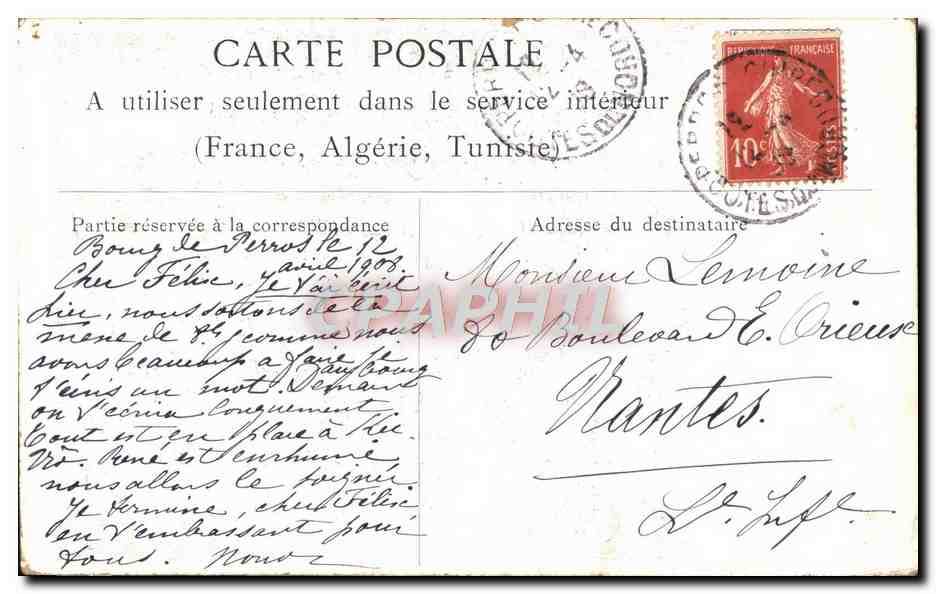 CARTE POSTALE
A utiliser seulement dans le service intérieur
(France, Algérie, Tunisie)
REPUBLIQUE FRANÇAISE
10c POSTES
PERROS-GUIREC
COTES DU NORD
Partie réservée à la correspondance
Adresse du destinataire
Bourg de Perros le 12
avril 1908
Cher Félix, Je t'ai écrit
hier, nous sortons de la
comme nous
avons beaucoup à faire
au bourg
un mot. Demain
on t'écrira longuement.
Tout est en place à Ker
René est enrhumé
nous allons le soigner
Je termine, cher Félix
en t'embrassant pour
tous.
Monsieur Lemoine
80 Boulevard E. Orieux
Nantes.
Lre Infre
CPAPHIL